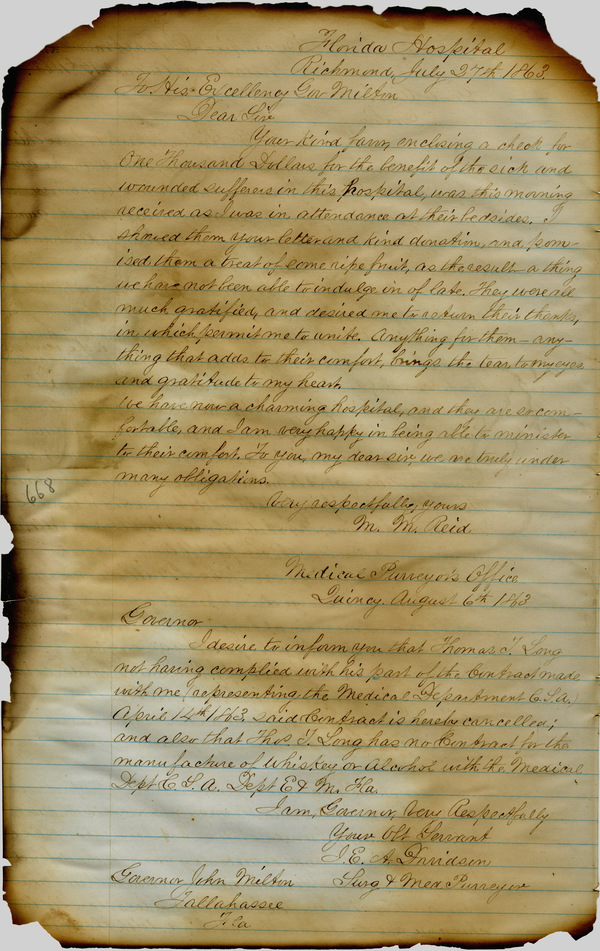 Florida Hospital
Richmond, July 27th 1863.
To His Excellency Gov Milton
Dear Sir
Your kind favor, enclosing a check for
One Thousand Dollars for the benefit of the sick and
wounded sufferers in this hospital, was this morning
received as I was in attendance at their bedsides. I
showed them your letter and kind donation, and prom-
ised them a treat of some ripe fruit, as the result - a thing
we have not been able to indulge in of late. They were all
much gratified, and desired me to return their thanks,
in which permit me to unite. Anything for them - any-
thing that adds to their comfort, brings the tear to my eyes
and gratitude to my heart.
We have now a charming hospital, and they are so com-
fortable, and I am very happy in being able to minister
to their comfort. To you, my dear sir, we are truly under
many obligations.
Very respectfully, yours
M. M. Reid
668
Medical Purveyor's Office
Quincy. August 6th 1863
Governor
I desire to inform you that Thomas T. Long
not having complied with his part of the Contract made
with me (representing the Medical Department C.S.A.)
April 14th 1863. said Contract is hereby cancelled;
and also that Thos. T. Long has no Contract for the
manufacture of Whiskey or Alcohol with the Medical
Dept C. S. A. Dept E & M. Fla.
I am, Governor, Very Respectfully
Your Obt Servant
J. E. A. Davidson
Governor John Milton Surg & Med. Purveyor
Tallahassee
Fla